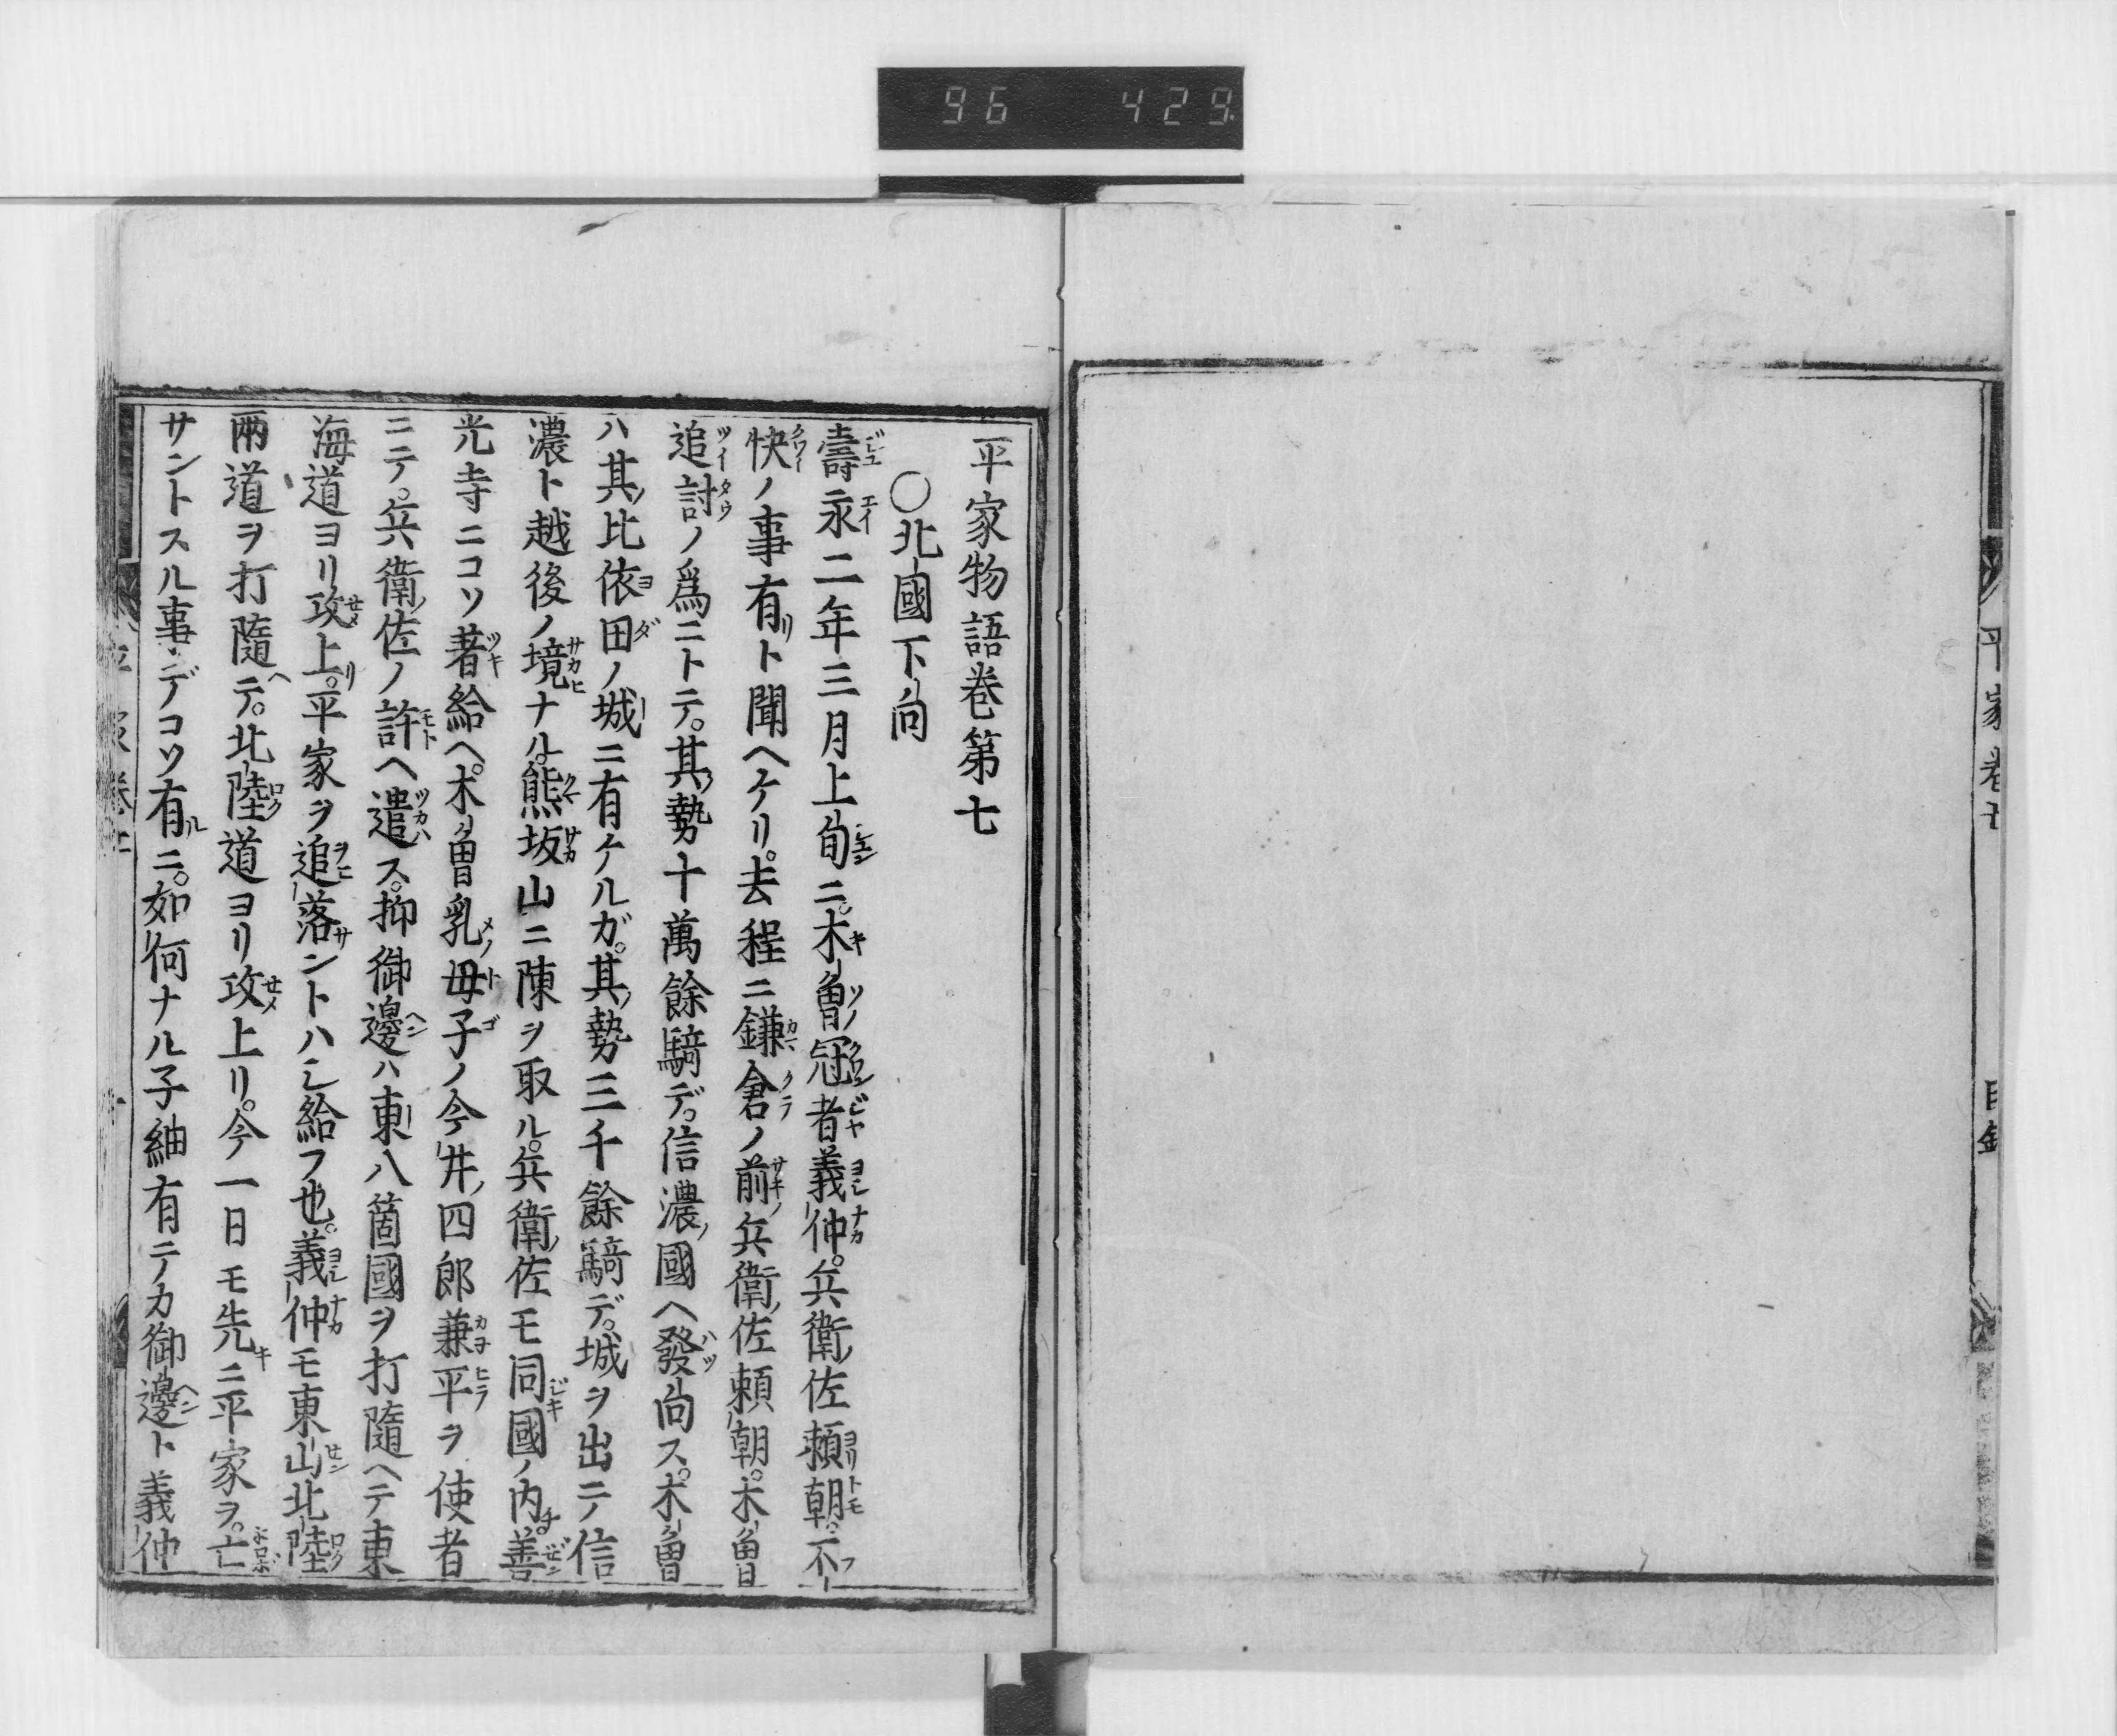 96 429
平家卷七
目録
平家物語巻第七
○北國下向
壽永二年三月上旬ニ。木曽冠者義仲。兵衛ノ佐頼朝。不
快ノ事有リト聞ヘケリ。去程ニ鎌倉ノ前兵衛ノ佐頼朝。木曽
追討ノ爲ニトテ。其ノ勢十萬餘騎デ。信濃ノ國ヘ發向ス。木曽
ハ其ノ比依田ノ城ニ有ケルガ。其ノ勢三千餘騎デ。城ヲ出テ信
濃ト越後ノ境ナル。熊坂山ニ陳ヲ取ル。兵衛ノ佐モ同國ノ内善
光寺ニコソ著給ヘ。木曽乳母子ノ今井ノ四郎兼平ヲ使者
ニテ。兵衛ノ佐ノ許ヘ遣ス。抑御邊ハ東八箇國ヲ打隨ヘテ東
海道ヨリ攻上リ。平家ヲ追落サントハシ給フ也。義仲モ東山北陸
兩道ヲ打隨ヘテ。北陸道ヨリ攻上リ。今一日モ先ニ平家ヲ。亡
サントスル事デコソ有ルニ。如何ナル子細有テカ御邊ト義仲